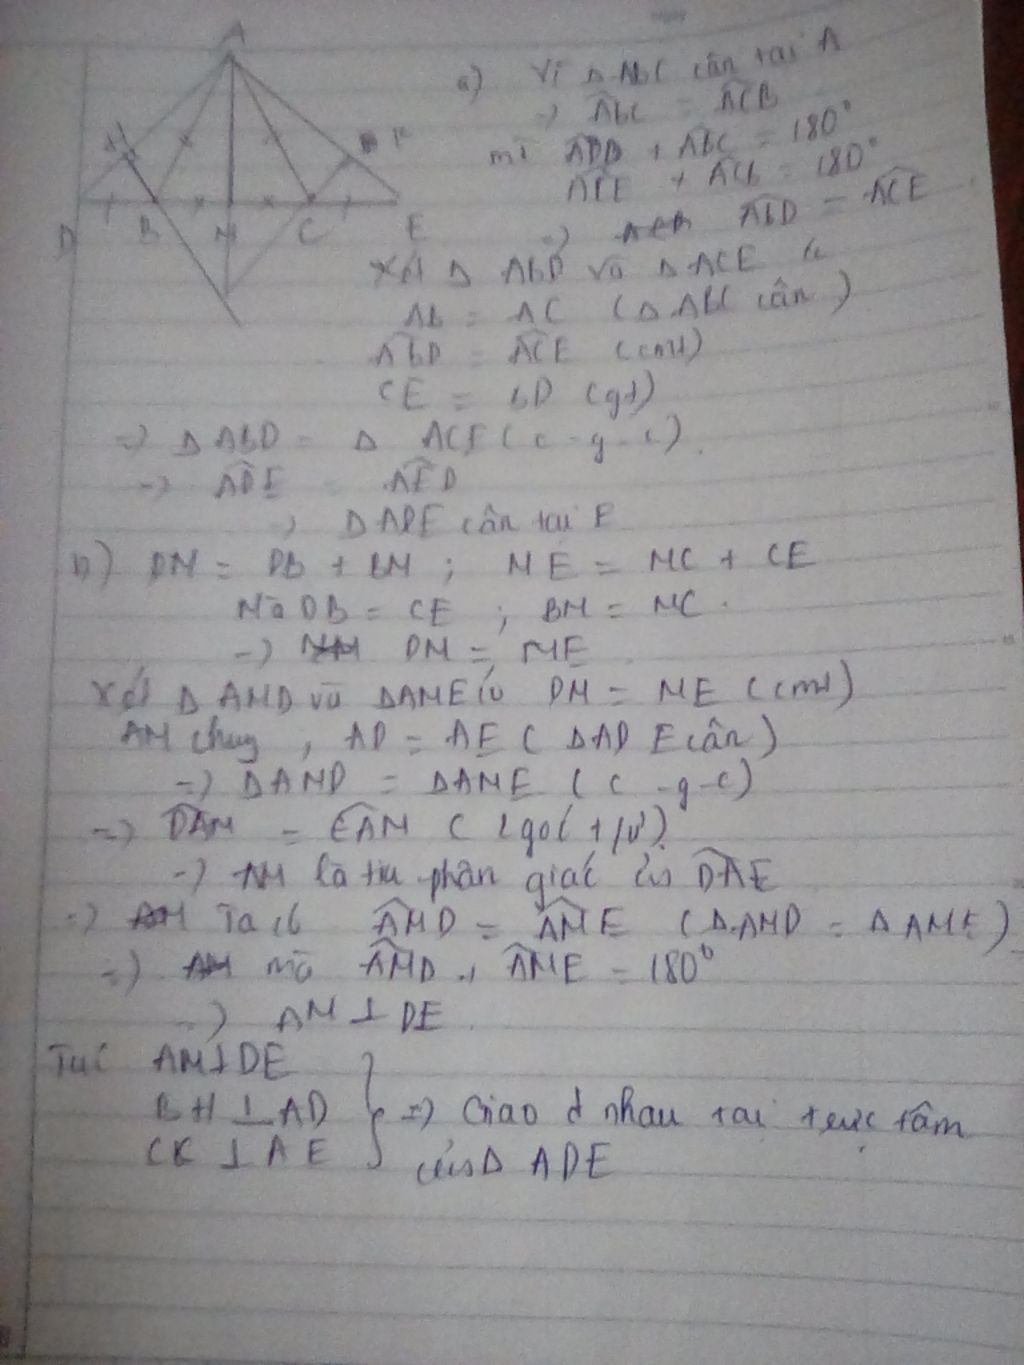 A
H
K
D B M C E
a) Vì Δ ABC cân tại A
=> ABC = ACB
mà ABD + ABC = 180°
ACE + ACB = 180°
=> ABD = ACE
Xét Δ ABD và Δ ACE có
AB = AC (Δ ABC cân)
ABD = ACE (cmt)
CE = BD (gt)
=> Δ ABD = Δ ACE (c-g-c)
=> ADE = AED
=> Δ ADE cân tại E
b) DM = DB + BM ; ME = MC + CE
Mà DB = CE ; BM = MC.
=> DM = ME
Xét Δ AMD và Δ AME có DM = ME (cmt)
AM chung, AD = AE (Δ ADE cân)
=> Δ AMD = Δ AME (c-g-c)
=> DAM = EAM (2 góc t/ứ)
=> AM là tia phân giác của DAE
=> Ta có AMD = AME (Δ AMD = Δ AME)
=> mà AMD + AME = 180°
=> AM ⊥ DE
AM ⊥ DE
BH ⊥ AD } => Giao nhau tại trực tâm
CK ⊥ AE của Δ ADE